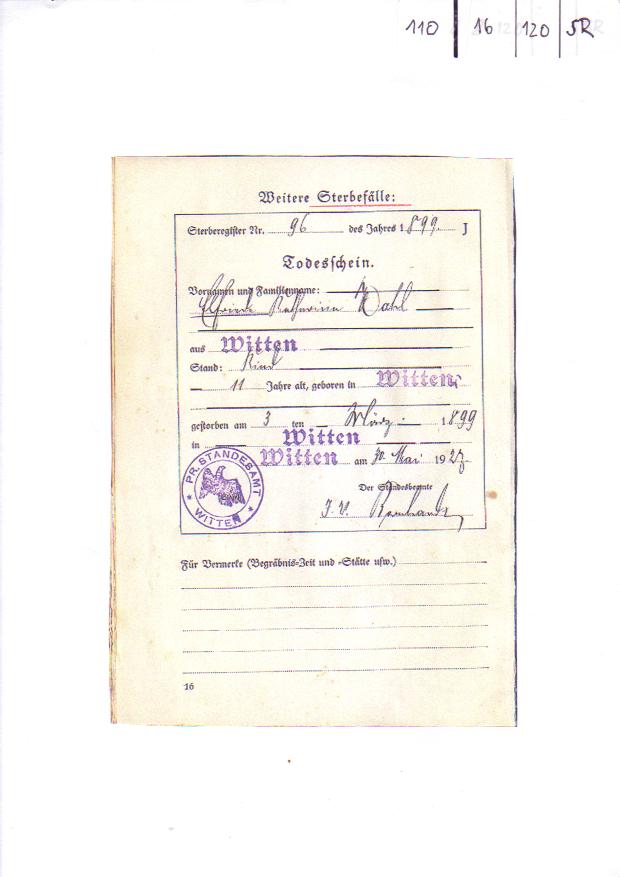 110 | 16 | 120 | SR
Weitere Sterbefälle:
Sterberegister Nr. 96 des Jahres 1899. J
Todesschein.
Vornamen und Familienname:
Elfriede Katharina Wahl
aus Witten
Stand: Kind
11 Jahre alt, geboren in Witten
gestorben am 3 ten März 1899
in Witten
Witten am 30. Mai 1927
Der Standesbeamte
I. V.
PR. STANDESAMT
WITTEN
Für Vermerke (Begräbnis-Zeit und -Stätte usw.)
16